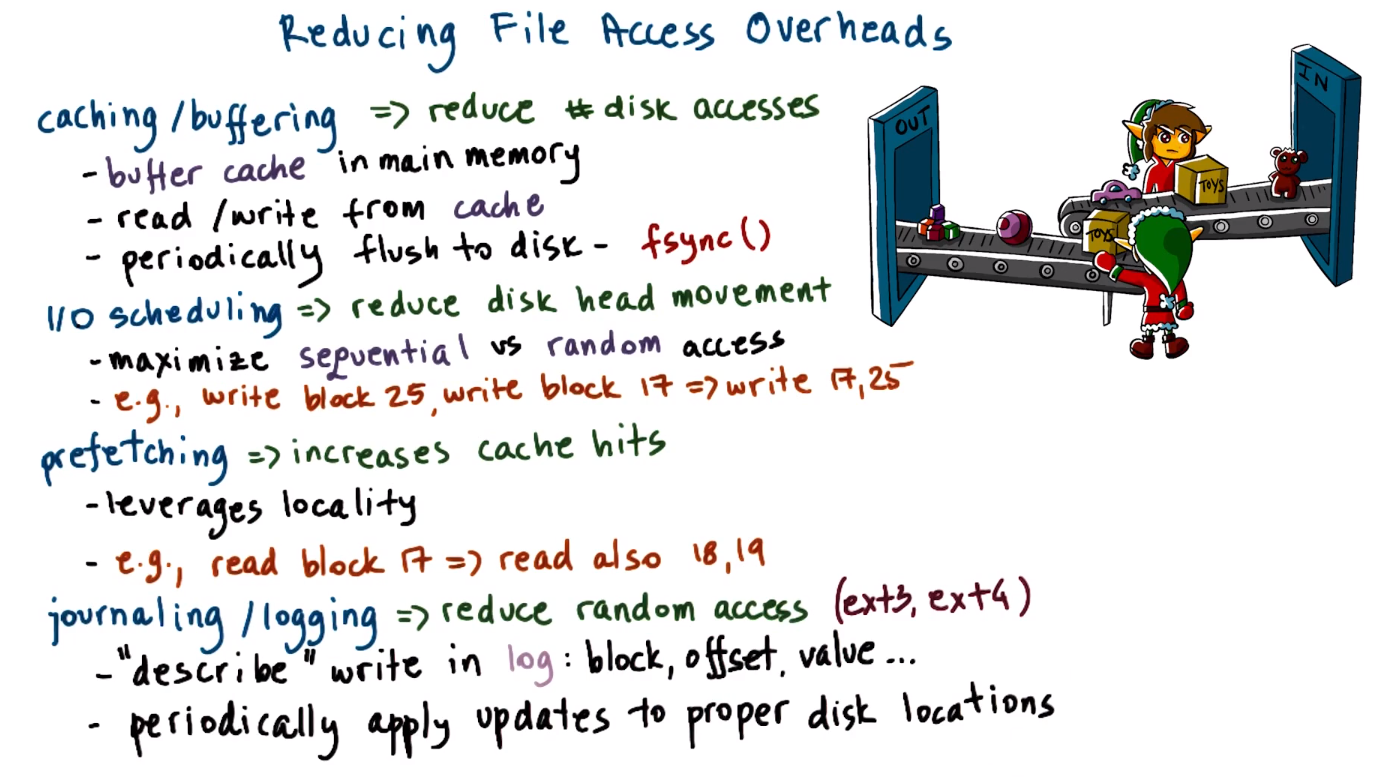 Reducing File Access Overheads
caching/buffering => reduce # disk accesses
- buffer cache in main memory
- read/write from cache
- periodically flush to disk - fsync()
I/O scheduling => reduce disk head movement
- maximize sequential vs random access
- e.g., write block 25, write block 17 => write 17,25
prefetching => increases cache hits
- leverages locality
- e.g., read block 17 => read also 18,19
journaling/logging => reduce random access (ext3, ext4)
- "describe" write in log: block, offset, value...
- periodically apply updates to proper disk locations
OUT
IN
TOYS
TOYS